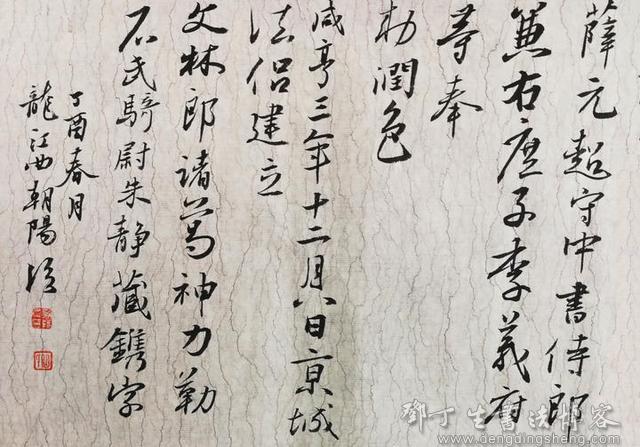 薛元超守中書侍郎
兼右庶子李義府
等奉
勅潤色
咸亨三年十二月八日京城
法侶建立
文林郎諸葛神力勒
石武騎尉朱静藏鐫字
丁酉春月
龍江西朝陽
鄧丁生書法博客
www.dengdingsheng.com